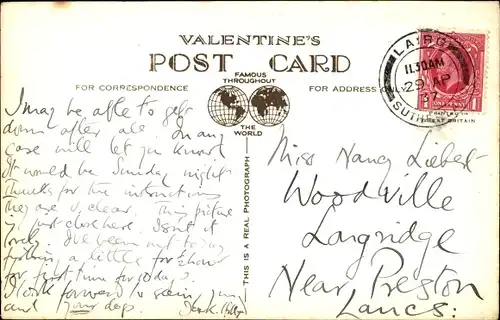 VALENTINE'S
POST CARD
FAMOUS THROUGHOUT
THE WORLD
FOR CORRESPONDENCE
FOR ADDRESS ONLY
THIS IS A REAL PHOTOGRAPH
LAIRG
11.30AM
29 AP
37
SUTH
ONE PENNY
GREAT BRITAIN
I may be able to get
down after all. In any
case will let you know.
It would be Sunday night
Thanks for the instructions
they are v. clear. This picture
is just close here. Isn't it
lovely I've been out today
fishing a little for
for first time for 10 days.
I look forward to seeing you
and your dogs.
Miss Nancy
Woodville
Longridge
Near Preston
Lancs: